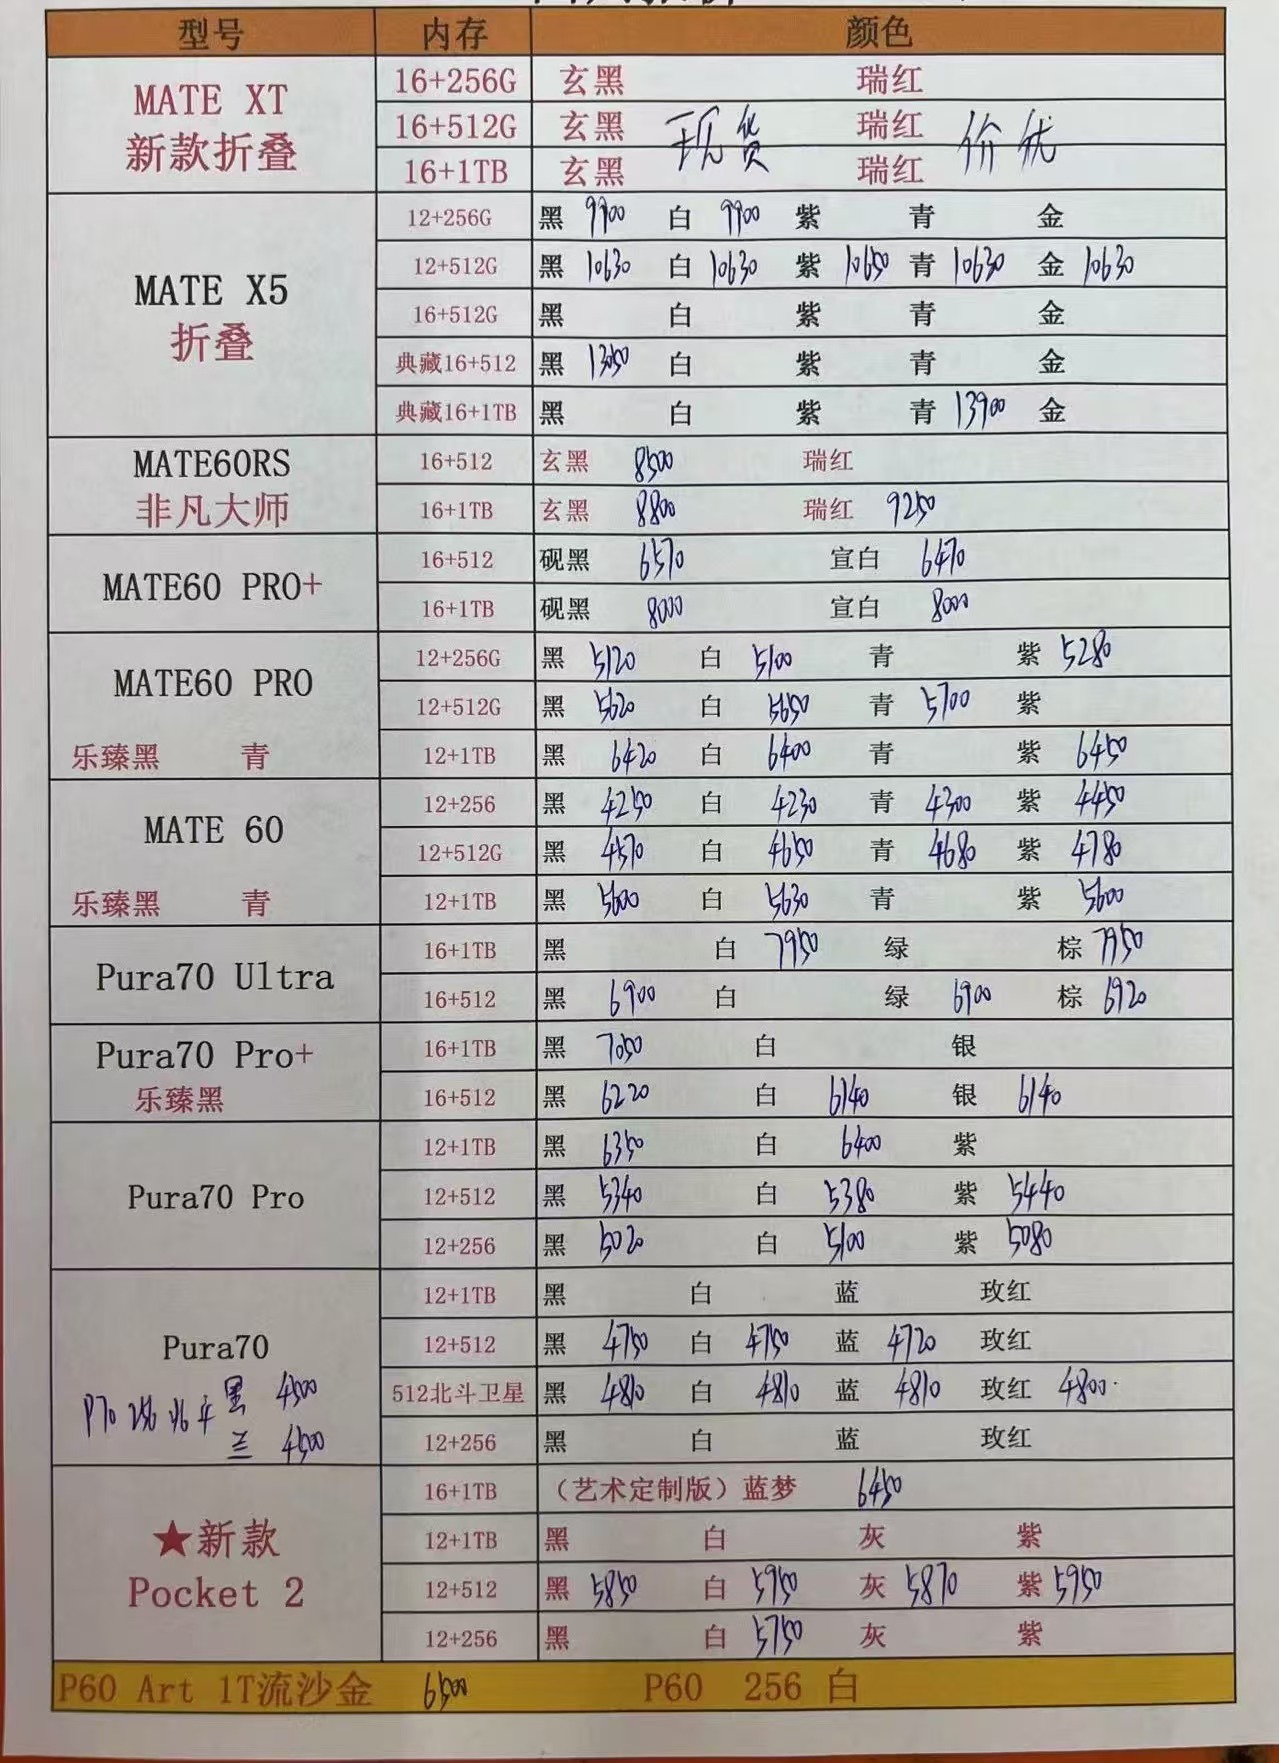 型号 内存 颜色
MATE XT
新款折叠
16+256G 玄黑 瑞红
16+512G 玄黑 现货 瑞红 价优
16+1TB 玄黑 瑞红
MATE X5
折叠
12+256G 黑 9900 白 9900 紫 青 金
12+512G 黑 10630 白 10630 紫 10650 青 10630 金 10630
16+512G 黑 白 紫 青 金
典藏16+512 黑 1350 白 紫 青 金
典藏16+1TB 黑 白 紫 青 13900 金
MATE60RS
非凡大师
16+512 玄黑 8500 瑞红
16+1TB 玄黑 8800 瑞红 9250
MATE60 PRO+
16+512 砚黑 6570 宣白 6470
16+1TB 砚黑 8000 宣白 8000
MATE60 PRO
乐臻黑 青
12+256G 黑 5120 白 5100 青 紫 5280
12+512G 黑 5620 白 5650 青 5700 紫
12+1TB 黑 6420 白 6400 青 紫 6450
MATE 60
乐臻黑 青
12+256 黑 4250 白 4230 青 4300 紫 4450
12+512G 黑 4570 白 4650 青 4680 紫 4780
12+1TB 黑 5600 白 5630 青 紫 5600
Pura70 Ultra
16+1TB 黑 白 7950 绿 棕 7950
16+512 黑 6900 白 绿 6900 棕 6920
Pura70 Pro+
乐臻黑
16+1TB 黑 7050 白 银
16+512 黑 6220 白 6140 银 6140
Pura70 Pro
12+1TB 黑 6350 白 6400 紫
12+512 黑 5340 白 5380 紫 5440
12+256 黑 5020 白 5100 紫 5080
Pura70
P70 256 北斗 黑 4500
兰 4500
12+1TB 黑 白 蓝 玫红
12+512 黑 4750 白 4750 蓝 4720 玫红
512北斗卫星 黑 4810 白 4810 蓝 4810 玫红 4800
12+256 黑 白 蓝 玫红
★新款
Pocket 2
16+1TB （艺术定制版）蓝梦 6450
12+1TB 黑 白 灰 紫
12+512 黑 5850 白 5950 灰 5870 紫 5950
12+256 黑 白 5750 灰 紫
P60 Art 1T流沙金 6500 P60 256 白